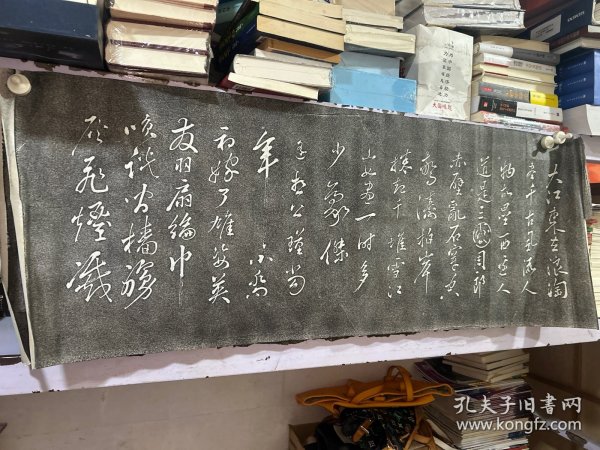 大江東去浪淘
盡千古風流人
物故壘西邊人
道是三國周郎
赤壁亂石穿空
驚濤拍岸
捲起千堆雪江
山如畫一時多
少豪傑
遙想公瑾當
年 小喬
初嫁了雄姿英
發羽扇綸巾
笑談間檣虜
灰飛煙滅
孔夫子旧书网
www.kongfz.com